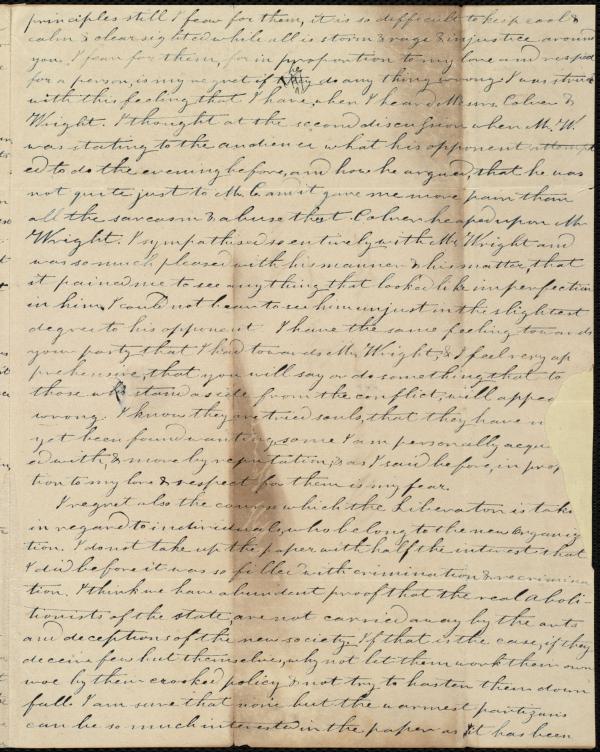 principles still I fear for them, it is so difficult to keep cool &
calm & clear sighted while all is storm & rage & injustice around
you. I fear for them, for in proportion to my love and respect
for a person, is my regret if they do any thing wrong. I was struck
with this feeling that I have, when I heard Messrs. Colver &
Wright. I thought at the second discussion when Mr. W.
was stating to the audience what his opponent attempt
ed to do the evening before, and how he argued, that he was
not quite just to Mr. C. and it gave me more pain than
all the sarcasm & abuse that Colver heaped upon Mr
Wright. I sympathised so entirely with Mr Wright and
was so much pleased with his manner & his matter, that
it pained me to see anything that looked like imperfection
in him. I could not bear to see him unjust in the slightest
degree to his opponent. I have the same feeling towards
your party that I had towards Mr Wright, & I feel very ap
prehensive, that you will say or do something that to
those who stand aside from the conflict, will appe
wrong. I know they are tried souls, that they have n
yet been found wanting, some I am personally acqu
ed with, & more by reputation, & as I said before, in pro
tion to my love & respect for them is my fear.
I regret also the course which the Liberator is taki
in regard to individuals, who belong to the new organiz
tion. I do not take up the paper with half the interest that
I did before it was so filled with crimination & recrimina
tion. I think we have abundant proof that the real aboli-
tionists of the state, are not carried away by the arts
and deception of the new society. If that is the case, if they
deceive few but themselves, why not let them work their own
woe by their crooked policy & not try to hasten their down
fall. I am sure that none but the warmest partizans
can be so much interested in the paper as it has been